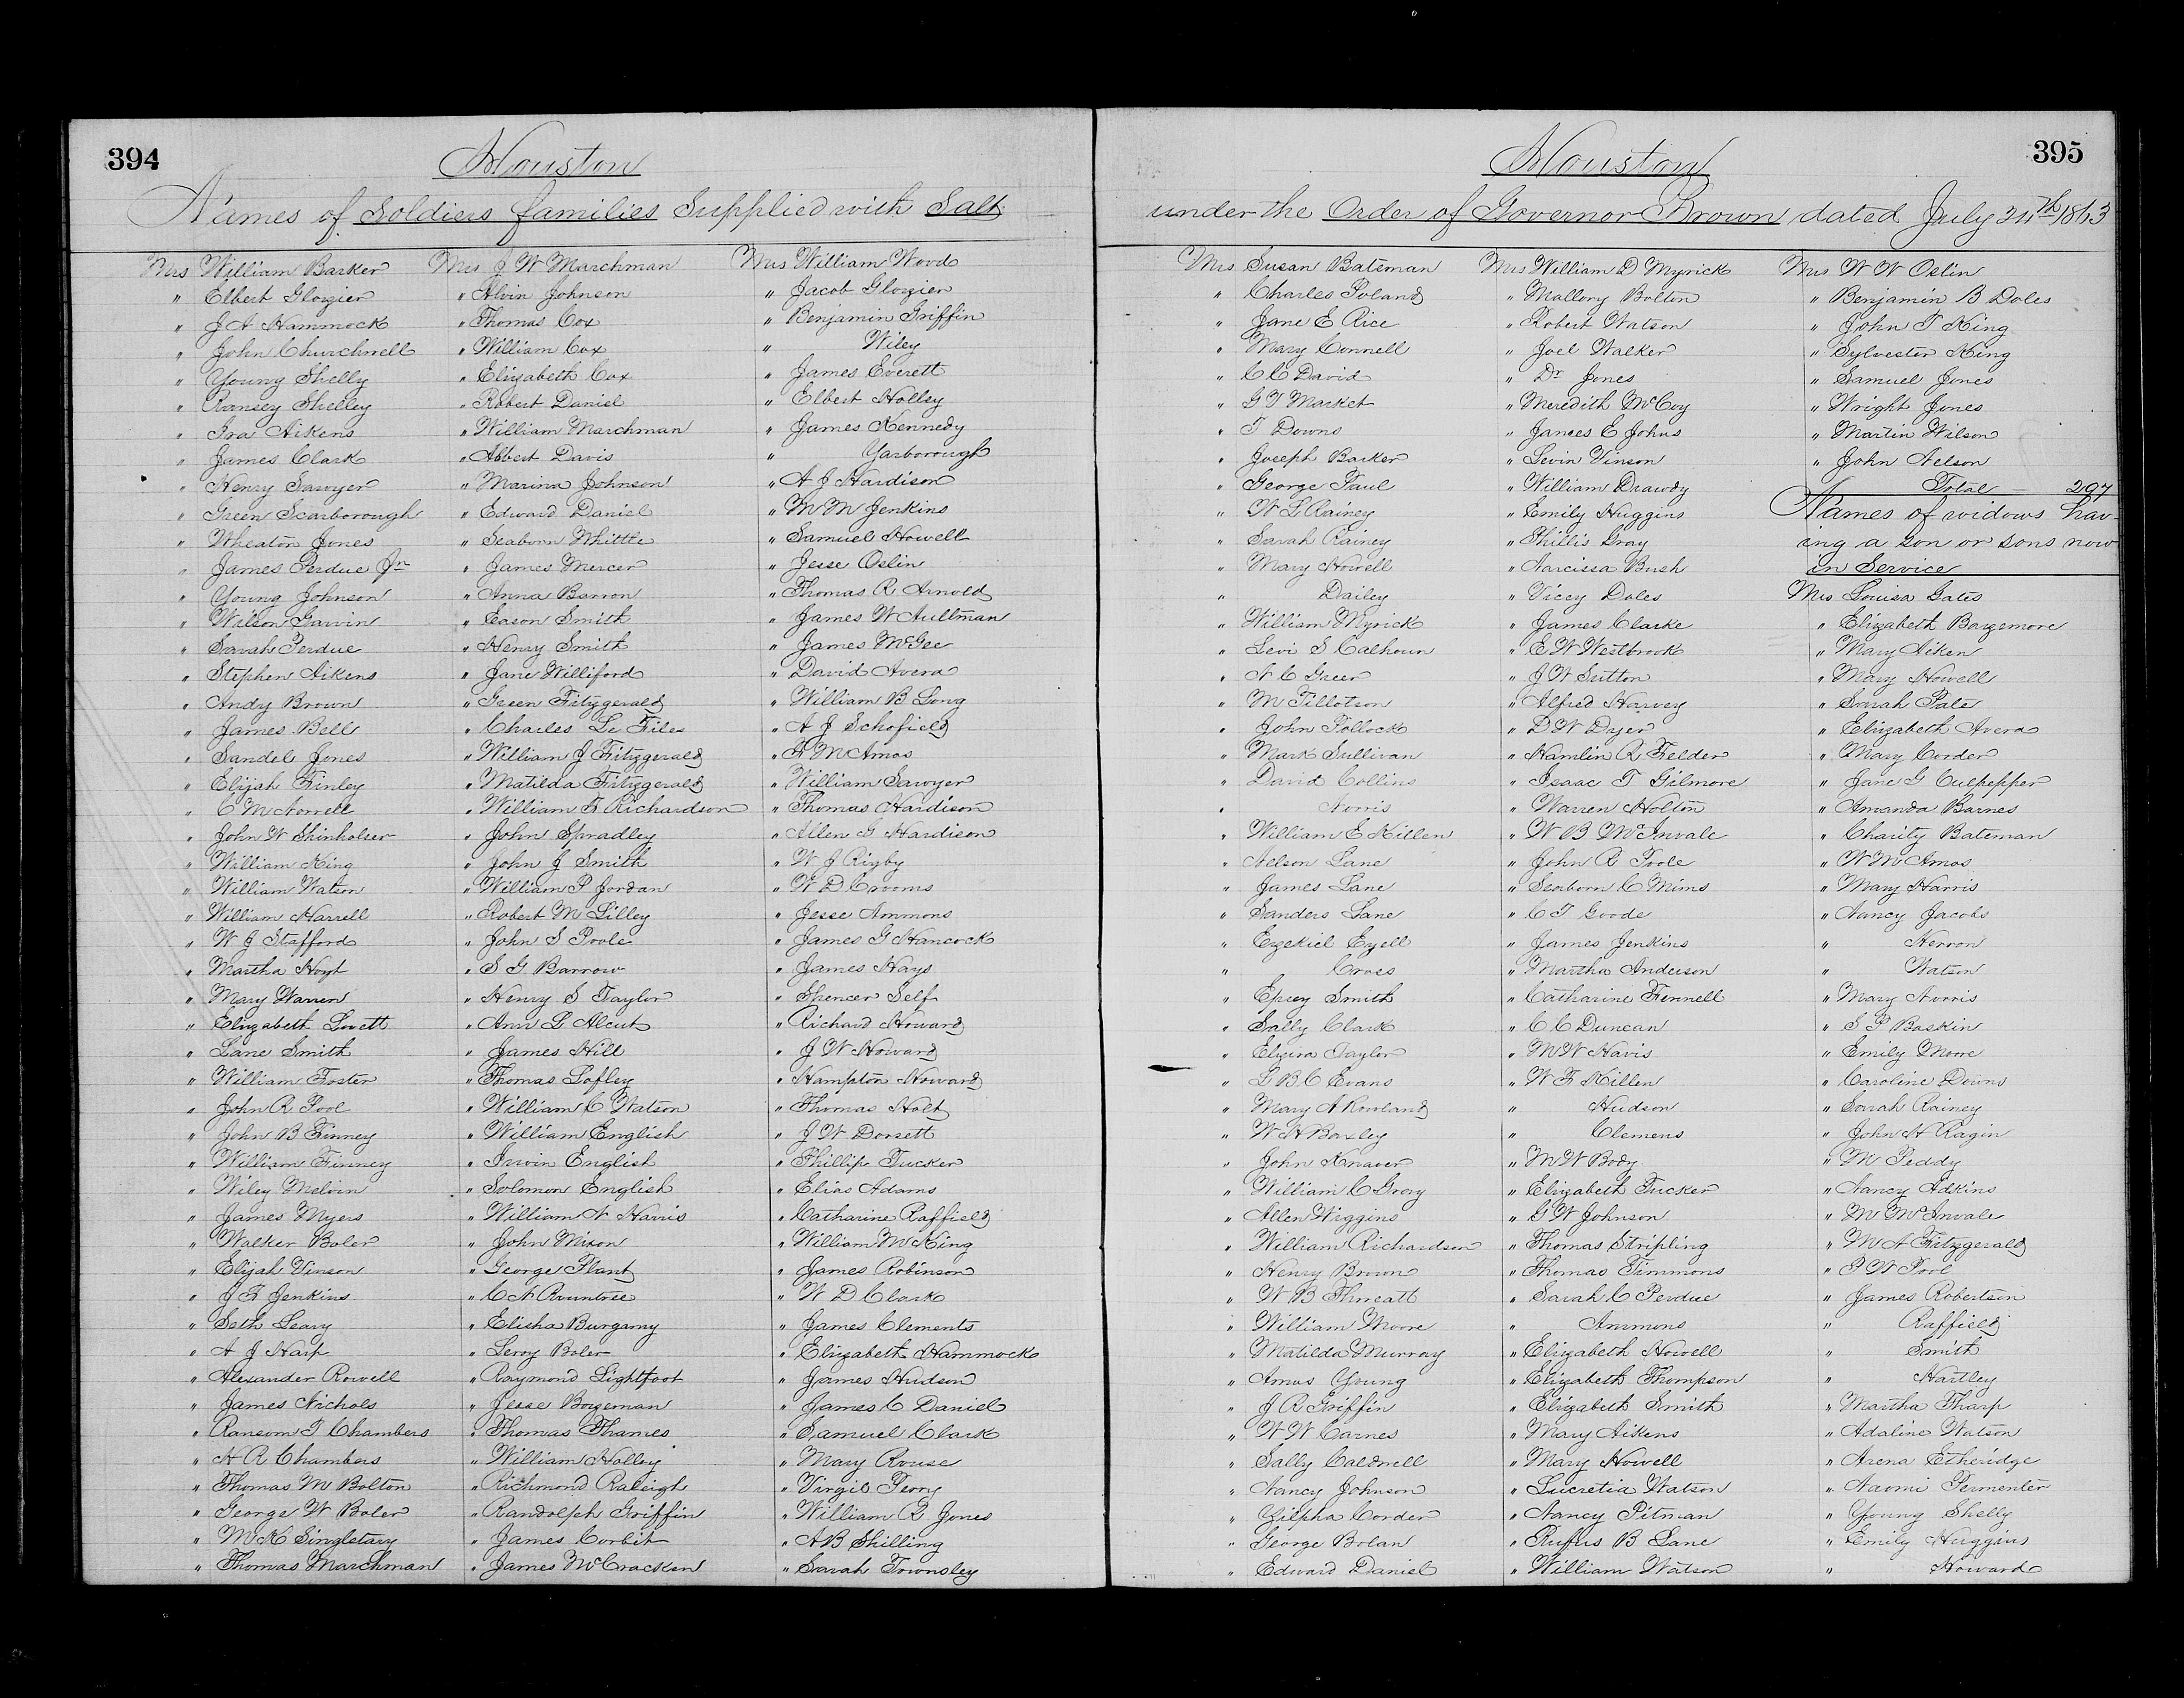 394
Houston
Names of Soldiers families Supplied with Salt
Mrs William Barker
" Elbert Glozier
" J A Hammock
" John Churchwell
" Young Shelly
" Ransey Shelley
" Ira Aikens
" James Clark
" Henry Sawyer
" Green Scarborough
" Wheaton Jones
" James Perdue Jr
" Young Johnson
" Wilson Garvin
" Sarah Perdue
" Stephen Aikens
" Andy Brown
" James Bell
" Sandel Jones
" Elijah Finley
" C M Norrell
" John W Shinholser
" William King
" William Watson
" William Harrell
" W J Stafford
" Martha Hoyt
" Mary Warren
" Elizabeth Lovett
" Lane Smith
" William Foster
" John R Pool
" John B Finney
" William Finney
" Wiley Melvin
" James Myers
" Walker Boler
" Elijah Vinson
" J F Jenkins
" Seth Leary
" A J Harp
" Alexander Rowell
" James Nichols
" Ransom T Chambers
" H R Chambers
" Thomas M Bolton
" George W Boler
" M K Singletary
" Thomas Marchman
Mrs J W Marchman
" Alvin Johnson
" Thomas Cox
" William Cox
" Elizabeth Cox
" Robert Daniel
" William Marchman
" Abbert Davis
" Marina Johnson
" Edward Daniel
" Seaborn Whittle
" James Mercer
" Anna Barron
" Eason Smith
" Henry Smith
" Jane Williford
" Green Fitzgerald
" Charles L. Files
" William J Fitzgerald
" Matilda Fitzgerald
" William F Richardson
" John Spradley
" John J Smith
" William P Jordan
" Robert M Lilley
" John S Poole
" S G Barrow
" Henry S Taylor
" Ann L Alcut
" James Hill
" Thomas Lofley
" William C Watson
" William English
" Irwin English
" Solomon English
" William N Harris
" John Mixon
" George Plant
" C A Rountree
" Elisha Burgamy
" Leroy Boler
" Raymond Lightfoot
" Jesse Bozeman
" Thomas Thames
" William Holley
" Richmond Raleigh
" Randolph Griffin
" James Corbit
" James McCracken
Mrs William Wood
" Jacob Glozier
" Benjamin Griffin
" Wiley
" James Everett
" Elbert Holley
" James Kennedy
" Yarborough
" A J Hardison
" M M Jenkins
" Samuel Howell
" Jesse Oslin
" Thomas R Arnold
" James W Aultman
" James McGee
" David Avera
" William B Long
" A J Schofield
" F M Amos
" William Sawyer
" Thomas Hardison
" Allen G Hardison
" W J Rigby
" W D Crooms
" Jesse Ammons
" James G Hancock
" James Hays
" Spencer Self
" Richard Howard
" J W Howard
" Hampton Howard
" Thomas Holt
" J W Dorsett
" Phillip Tucker
" Elias Adams
" Catharine Raffield
" William M King
" James Robinson
" W D Clark
" James Clements
" Elizabeth Hammock
" James Hudson
" James C Daniel
" Samuel Clark
" Mary Rouse
" Virgil Perry
" William R Jones
" A B Shilling
" Sarah Townsley
395
Houston
under the Order of Governor Brown dated July 24th 1863
Mrs Susan Bateman
" Charles Poland
" Jane E Rice
" Mary Connell
" C C David
" G T Market
" T Downs
" Joseph Barker
" George Paul
" W L Rainey
" Sarah Rainey
" Mary Howell
" Dailey
" William Myrick
" Levi S Calhoun
" A C Greer
" M Tillotson
" John Pollock
" Mark Sullivan
" David Collins
" Norris
" William E Killen
" Nelson Lane
" James Lane
" Sanders Lane
" Ezekiel Ezell
" Cross
" Epcey Smith
" Sally Clark
" Elvira Taylor
" L B C Evans
" Mary A Rowland
" W H Boxley
" John Knaver
" William C Gray
" Allen Wiggins
" William Richardson
" Henry Brown
" W B Threatt
" William Moore
" Matilda Murray
" Amos Young
" J R Griffin
" W W Carnes
" Sally Caldwell
" Nancy Johnson
" Zilpha Corder
" George Bolan
" Edward Daniel
Mrs William D Myrick
" Mallory Bolton
" Robert Watson
" Joel Walker
" Dr Jones
" Meredith McCoy
" James E Johns
" Levin Vinson
" William Drawdy
" Emily Huggins
" Phillis Gray
" Narcissa Bush
" Vicey Doles
" James Clarke
" E W Westbrook
" J W Sutton
" Alfred Harvey
" D W Dyer
" Hamlin R Felder
" Isaac T Gilmore
" Warren Holton
" W B McInvale
" John R Poole
" Seaborn C Mims
" C T Goode
" James Jenkins
" Martha Anderson
" Catharine Fennell
" C C Duncan
" M W Havis
" W F Killen
" Hudson
" Clemens
" M W Body
" Elizabeth Tucker
" G W Johnson
" Thomas Stripling
" Thomas Timmons
" Sarah C Perdue
" Ammons
" Elizabeth Howell
" Elizabeth Thompson
" Elizabeth Smith
" Mary Aikens
" Mary Howell
" Lucretia Watson
" Nancy Pitman
" Rufus B Lane
" William Watson
Mrs W W Oslin
" Benjamin B Doles
" John T King
" Sylvester King
" Samuel Jones
" Wright Jones
" Martin Wilson
" John Nelson
Total 297
Names of widows hav-
ing a son or sons now
in Service
Mrs Louisa Gates
" Elizabeth Bazemore
" Mary Aiken
" Mary Howell
" Sarah Pate
" Elizabeth Avera
" Mary Corder
" Jane G Culpepper
" Amanda Barnes
" Charity Bateman
" W M Amos
" Mary Harris
" Nancy Jacobs
" Herron
" Watson
" Mary Norris
" S P Baskin
" Emily Moore
" Caroline Downs
" Sarah Rainey
" John H Ragin
" M Peddy
" Nancy Adkins
" M McInvale
" M A Fitzgerald
" P W Pool
" James Robertson
" Raffield
" Smith
" Hartley
" Martha Tharp
" Adaline Watson
" Arena Etheridge
" Naomi Permenter
" Young Shelly
" Emily Huggins
" Howard